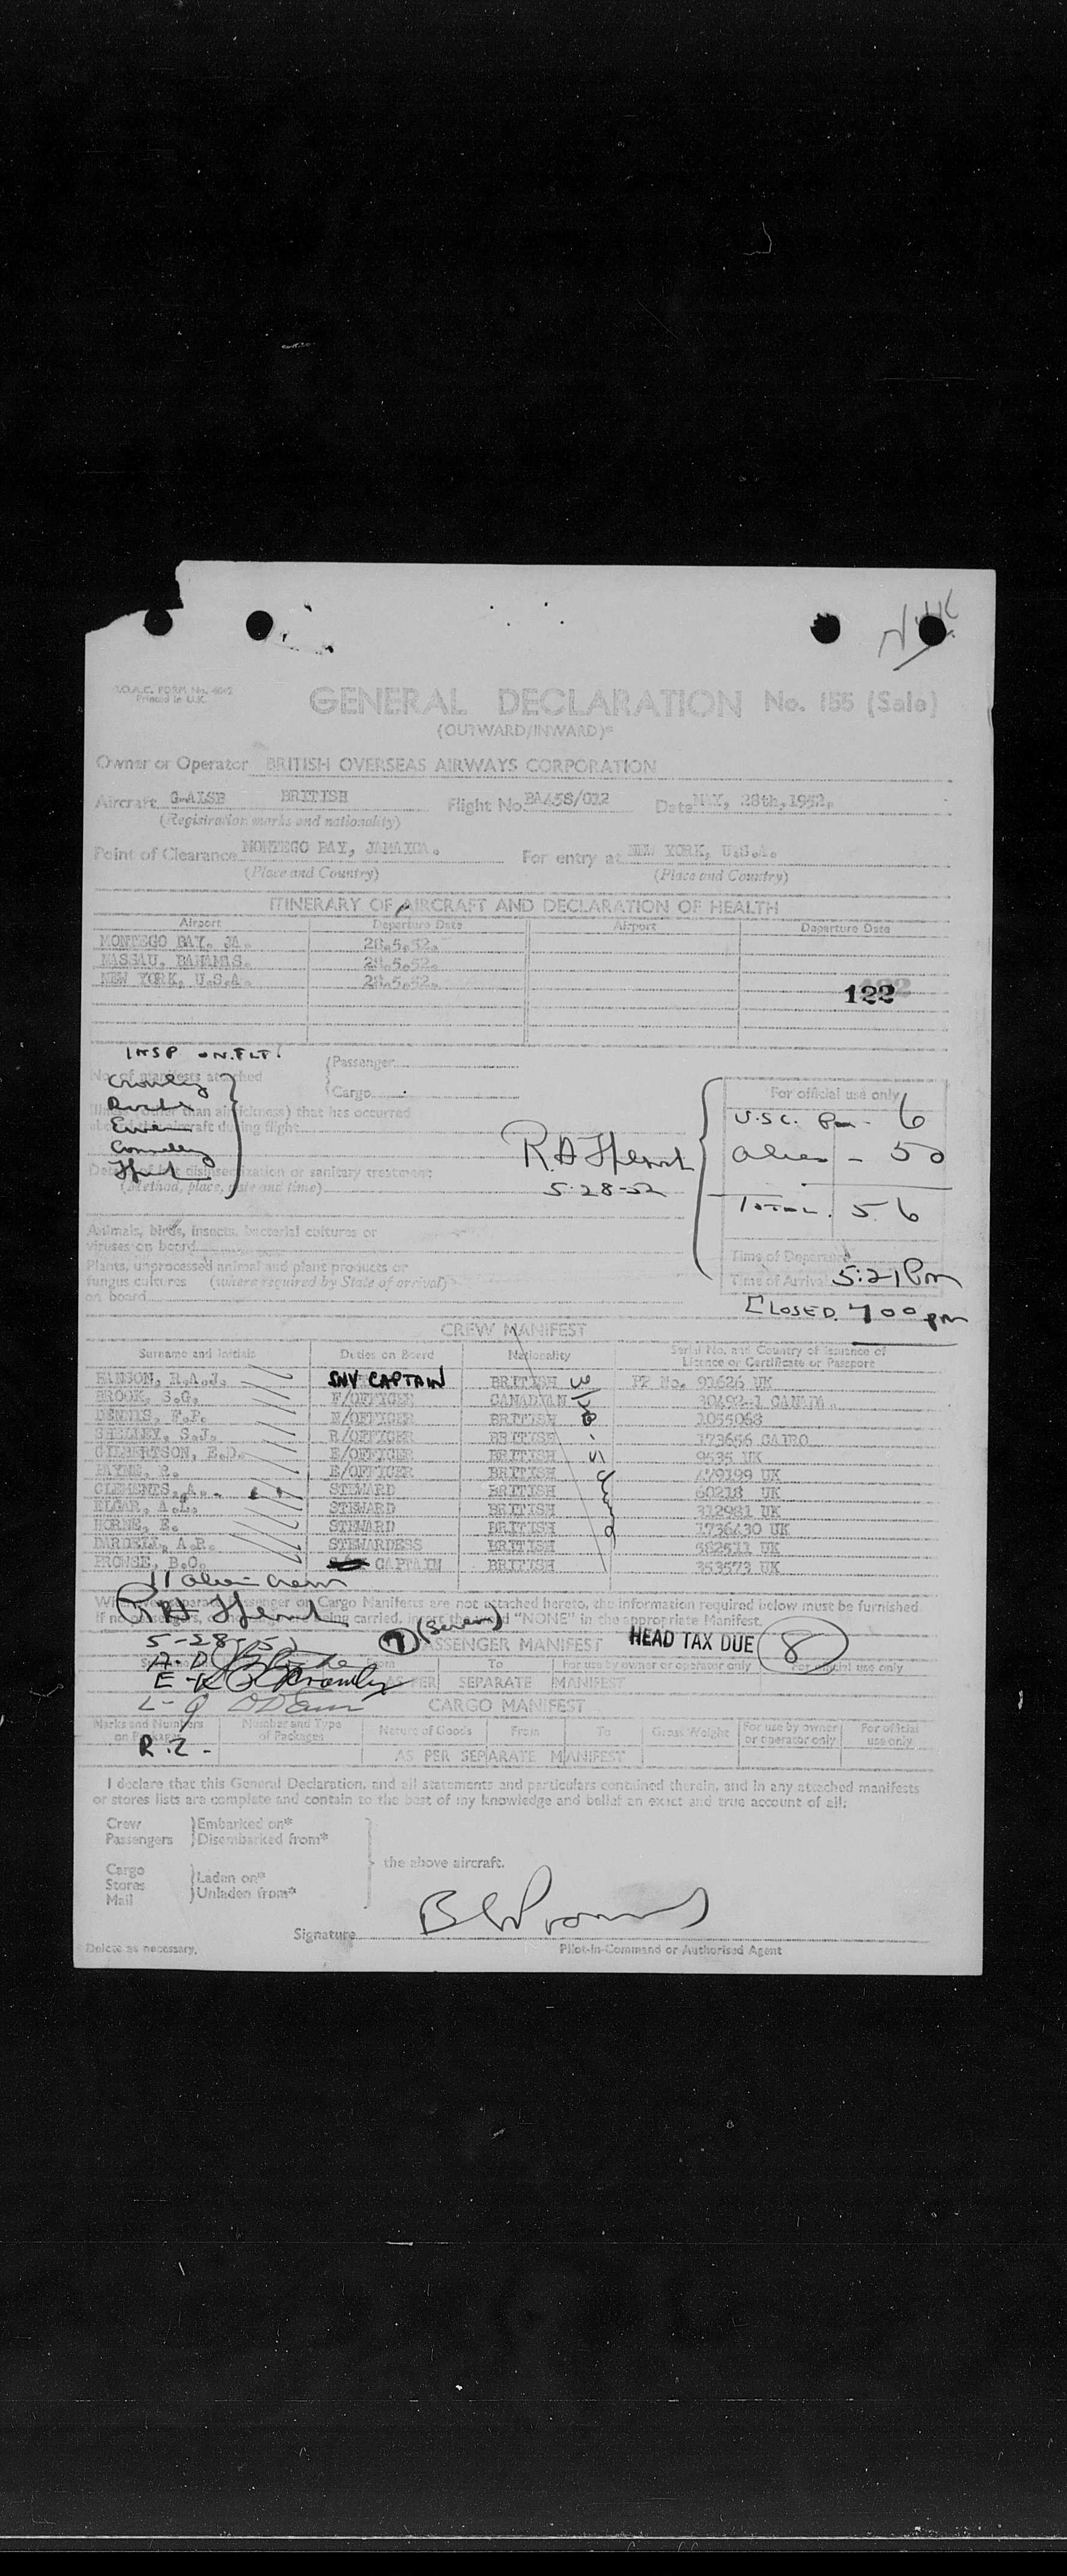 B.O.A.C. FORM No. 4042
Printed in U.K.
GENERAL DECLARATION No. 155 (Sale)
(OUTWARD/INWARD)*
Owner or Operator BRITISH OVERSEAS AIRWAYS CORPORATION
Aircraft BRITISH Flight No. BA458/012 Date MAY, 28th, 1952.
(Registration marks and nationality)
Point of Clearance MONTEGO BAY, JAMAICA. For entry at NEW YORK, U.S.A.
(Place and Country) (Place and Country)
ITINERARY OF AIRCRAFT AND DECLARATION OF HEALTH
Airport Departure Date Airport Departure Date
MONTEGO BAY, JA. 28.5.52.
NASSAU, BAHAMAS. 28.5.52.
NEW YORK, U.S.A. 28.5.52.
122
INSP ON. FLT.
No. of manifests attached {Passenger
Cargo
Crowley
Illness (other than airsickness) that has occurred
at on the aircraft during flight
Connelly
Details of last disinsectization or sanitary treatment
(Method, place, date and time)
5-28-52
For official use only
U.S.C. 6
Alien - 50
TOTAL. 56
Animals, birds, insects, bacterial cultures or
viruses on board
Plants, unprocessed animal and plant products or
fungus cultures (where required by State of arrival)
on board
Time of Departure
Time of Arrival 5:21 Pm
CLOSED. 700 pm
CREW MANIFEST
Surname and Initials Duties on Board Nationality Serial No. and Country of Issuance of
Licence or Certificate or Passport
HANSON, R.A.J. SNR CAPTAIN BRITISH PP No. 91626 UK
BROOK, S.G. F/OFFICER CANADIAN
DENNIS, F.F. N/OFFICER BRITISH 1055068
SHELLEY, S.J. R/OFFICER BRITISH 173656 CAIRO
GILBERTSON, E.D. E/OFFICER BRITISH 9535 UK
PAYNE, R. E/OFFICER BRITISH 479199 UK
CLEMENTS, A. STEWARD BRITISH 60218 UK
ELGAR, A.L. STEWARD BRITISH 312981 UK
HORNE, E. STEWARD BRITISH 1736430 UK
DARDELL, A.R. STEWARDESS BRITISH 582511 UK
PROWSE, B.C. CAPTAIN BRITISH 353573 UK
11 alien crew
Where separate Passenger or Cargo Manifests are not attached hereto, the information required below must be furnished
If no being carried, insert the word "NONE" in the appropriate Manifest.
5-28-52
7 (seven)
PASSENGER MANIFEST HEAD TAX DUE 8
To For use by owner or operator only For official use only
AS PER SEPARATE MANIFEST
CARGO MANIFEST
Marks and Numbers on Packages Number and Type of Packages Nature of Goods From To Gross Weight For use by owner or operator only For official use only
AS PER SEPARATE MANIFEST
I declare that this General Declaration, and all statements and particulars contained therein, and in any attached manifests
or stores lists are complete and contain to the best of my knowledge and belief an exact and true account of all:
Crew } Embarked on*
Passengers } Disembarked from*
the above aircraft.
Cargo
Stores } Laden on*
Mail } Unladen from*
Signature
Delete as necessary. Pilot-in-Command or Authorised Agent